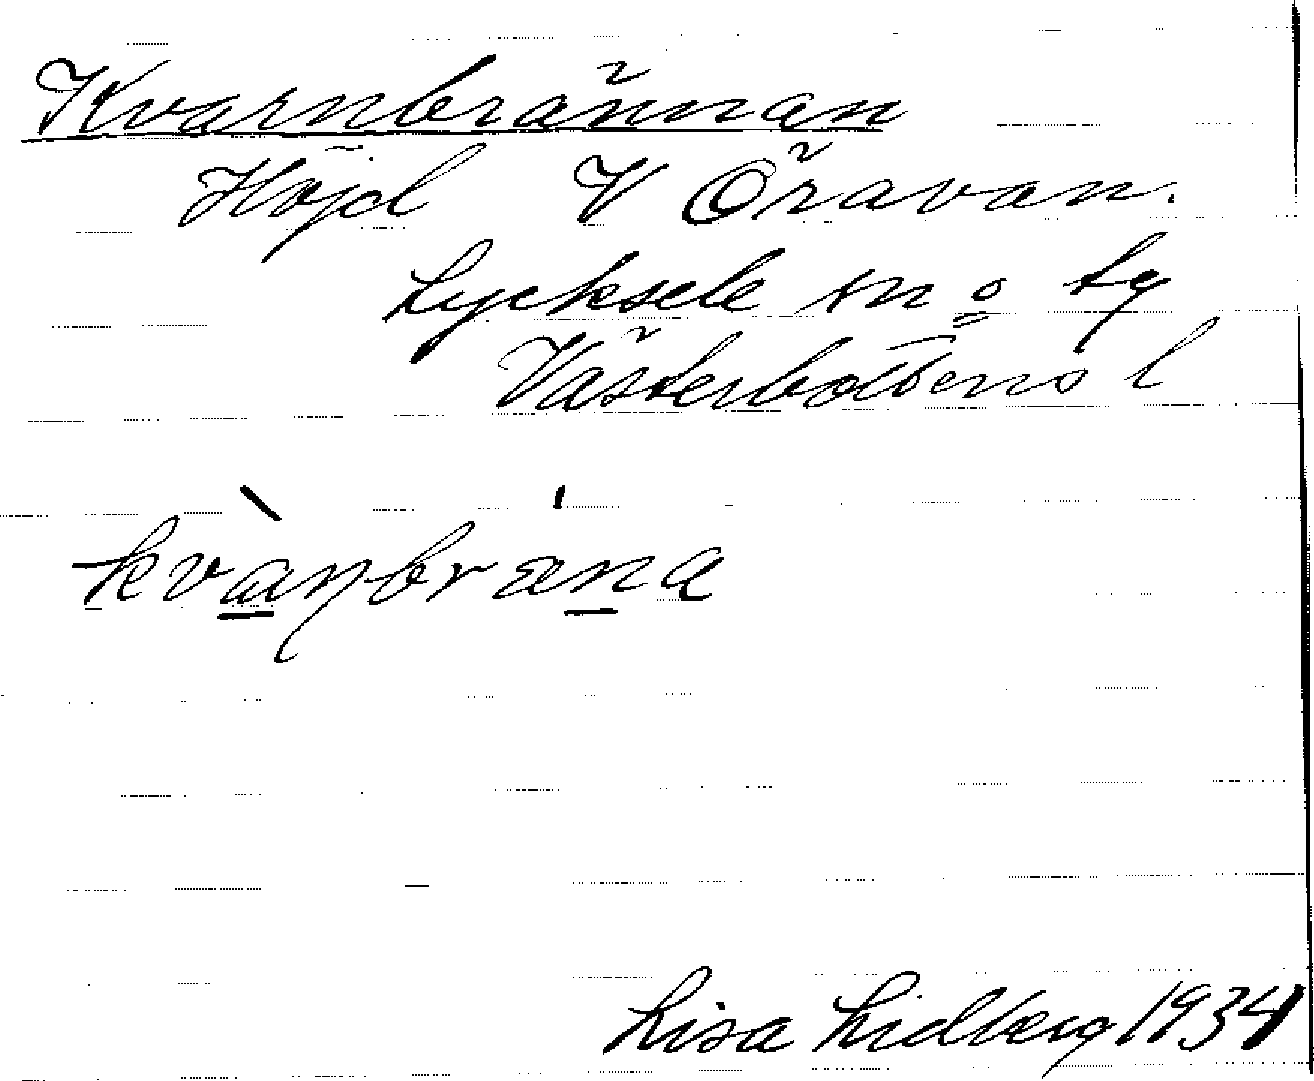 Kvarnbrännan
Höjd V Öravan.
Lycksele sn o tg
Västerbottens l
kvàṇbræ̍na
Lisa Lidberg 1934